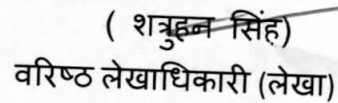 ( शत्रुहन सिंह)
वरिष्ठ लेखाधिकारी (लेखा)